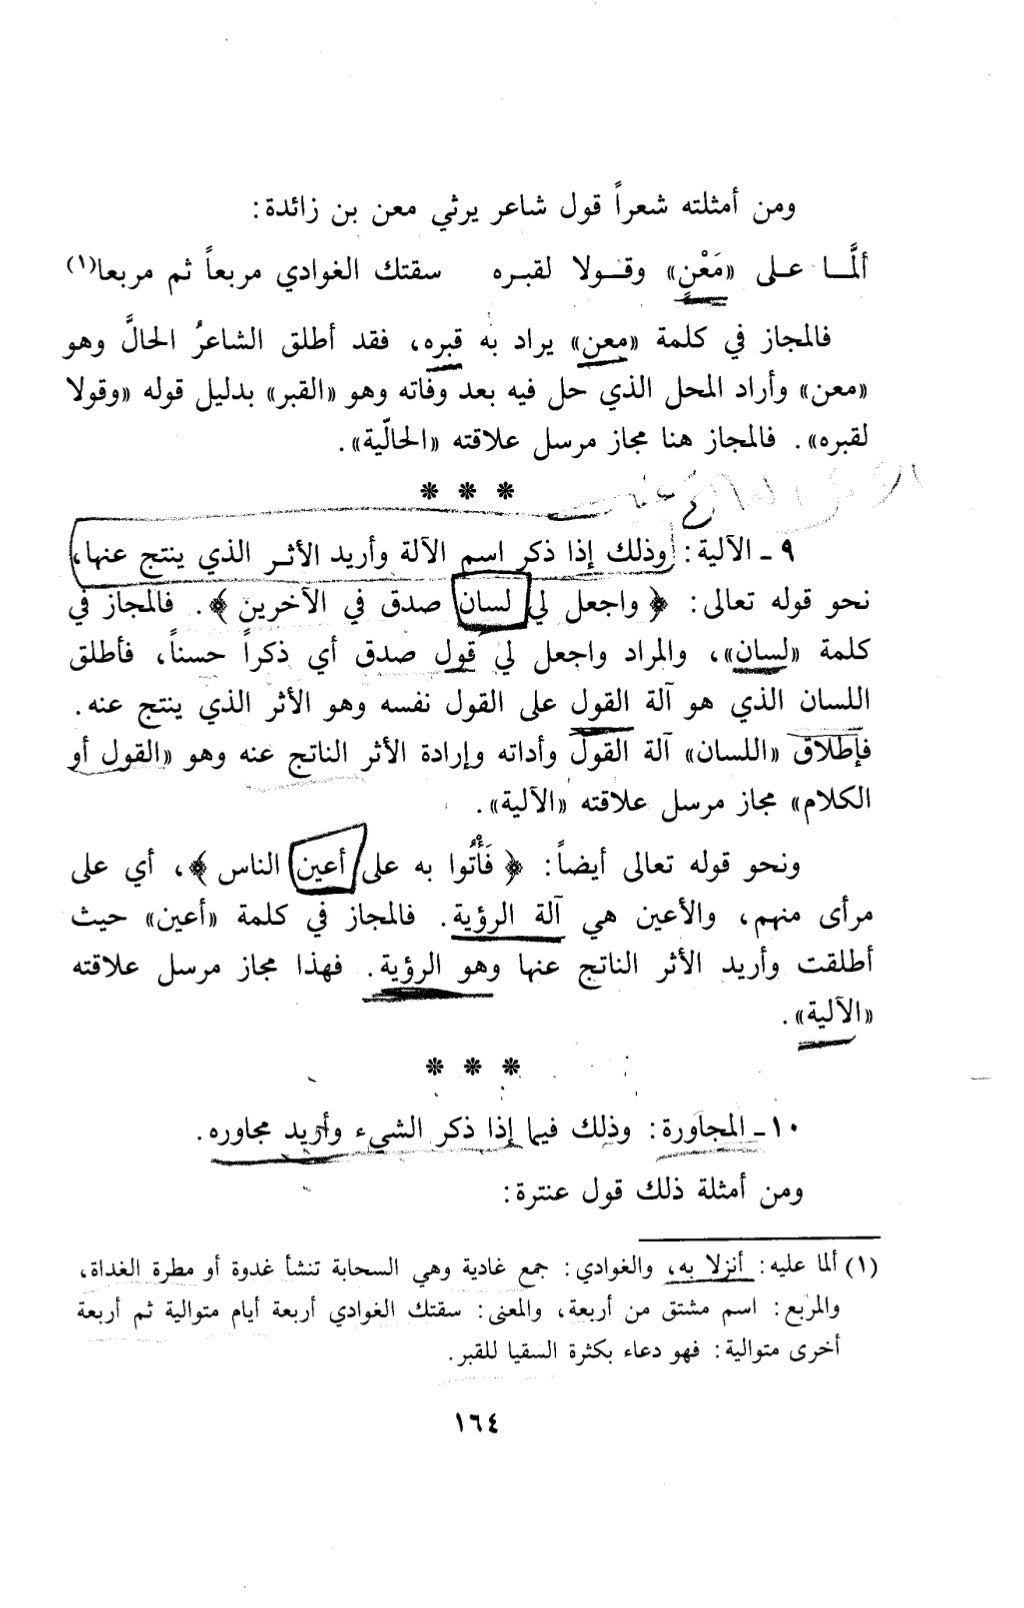 ومن أمثلته شعراً قول شاعر يرثي معن بن زائدة:
ألمَّـا علـى «مَعْنٍ» وقـولا لقبـره سقتك الغوادي مربعاً ثم مربعا(١)
فالمجاز في كلمة «معن» يراد به قبره، فقد أطلق الشاعرُ الحالَّ وهو
«معن» وأراد المحل الذي حل فيه بعد وفاته وهو «القبر» بدليل قوله «وقولا
لقبره». فالمجاز هنا مجاز مرسل علاقته «الحالّية».
* * *
٩ - الآلية: وذلك إذا ذكر اسم الآلة وأريد الأثـر الذي ينتج عنها،
نحو قوله تعالى: ﴿ واجعل لي لسان صدق في الآخرين ﴾. فالمجاز في
كلمة «لسان»، والمراد واجعل لي قول صدق أي ذكراً حسناً، فأطلق
اللسان الذي هو آلة القول على القول نفسه وهو الأثر الذي ينتج عنه.
فإطلاق «اللسان» آلة القول وأداته وإرادة الأثر الناتج عنه وهو «القول أو
الكلام» مجاز مرسل علاقته «الآلية».
ونحو قوله تعالى أيضاً: ﴿ فَأْتُوا به على أعين الناس ﴾، أي على
مرأى منهم، والأعين هي آلة الرؤية. فالمجاز في كلمة «أعين» حيث
أطلقت وأريد الأثر الناتج عنها وهو الرؤية. فهذا مجاز مرسل علاقته
«الآلية».
* * *
١٠ - المجاورة: وذلك فيما إذا ذكر الشيء وأريد مجاوره.
ومن أمثلة ذلك قول عنترة:
(١) ألما عليه: أنزلا به، والغوادي: جمع غادية وهي السحابة تنشأ غدوة أو مطرة الغداة،
والمربع: اسم مشتق من أربعة، والمعنى: سقتك الغوادي أربعة أيام متوالية ثم أربعة
أخرى متوالية: فهو دعاء بكثرة السقيا للقبر.
١٦٤